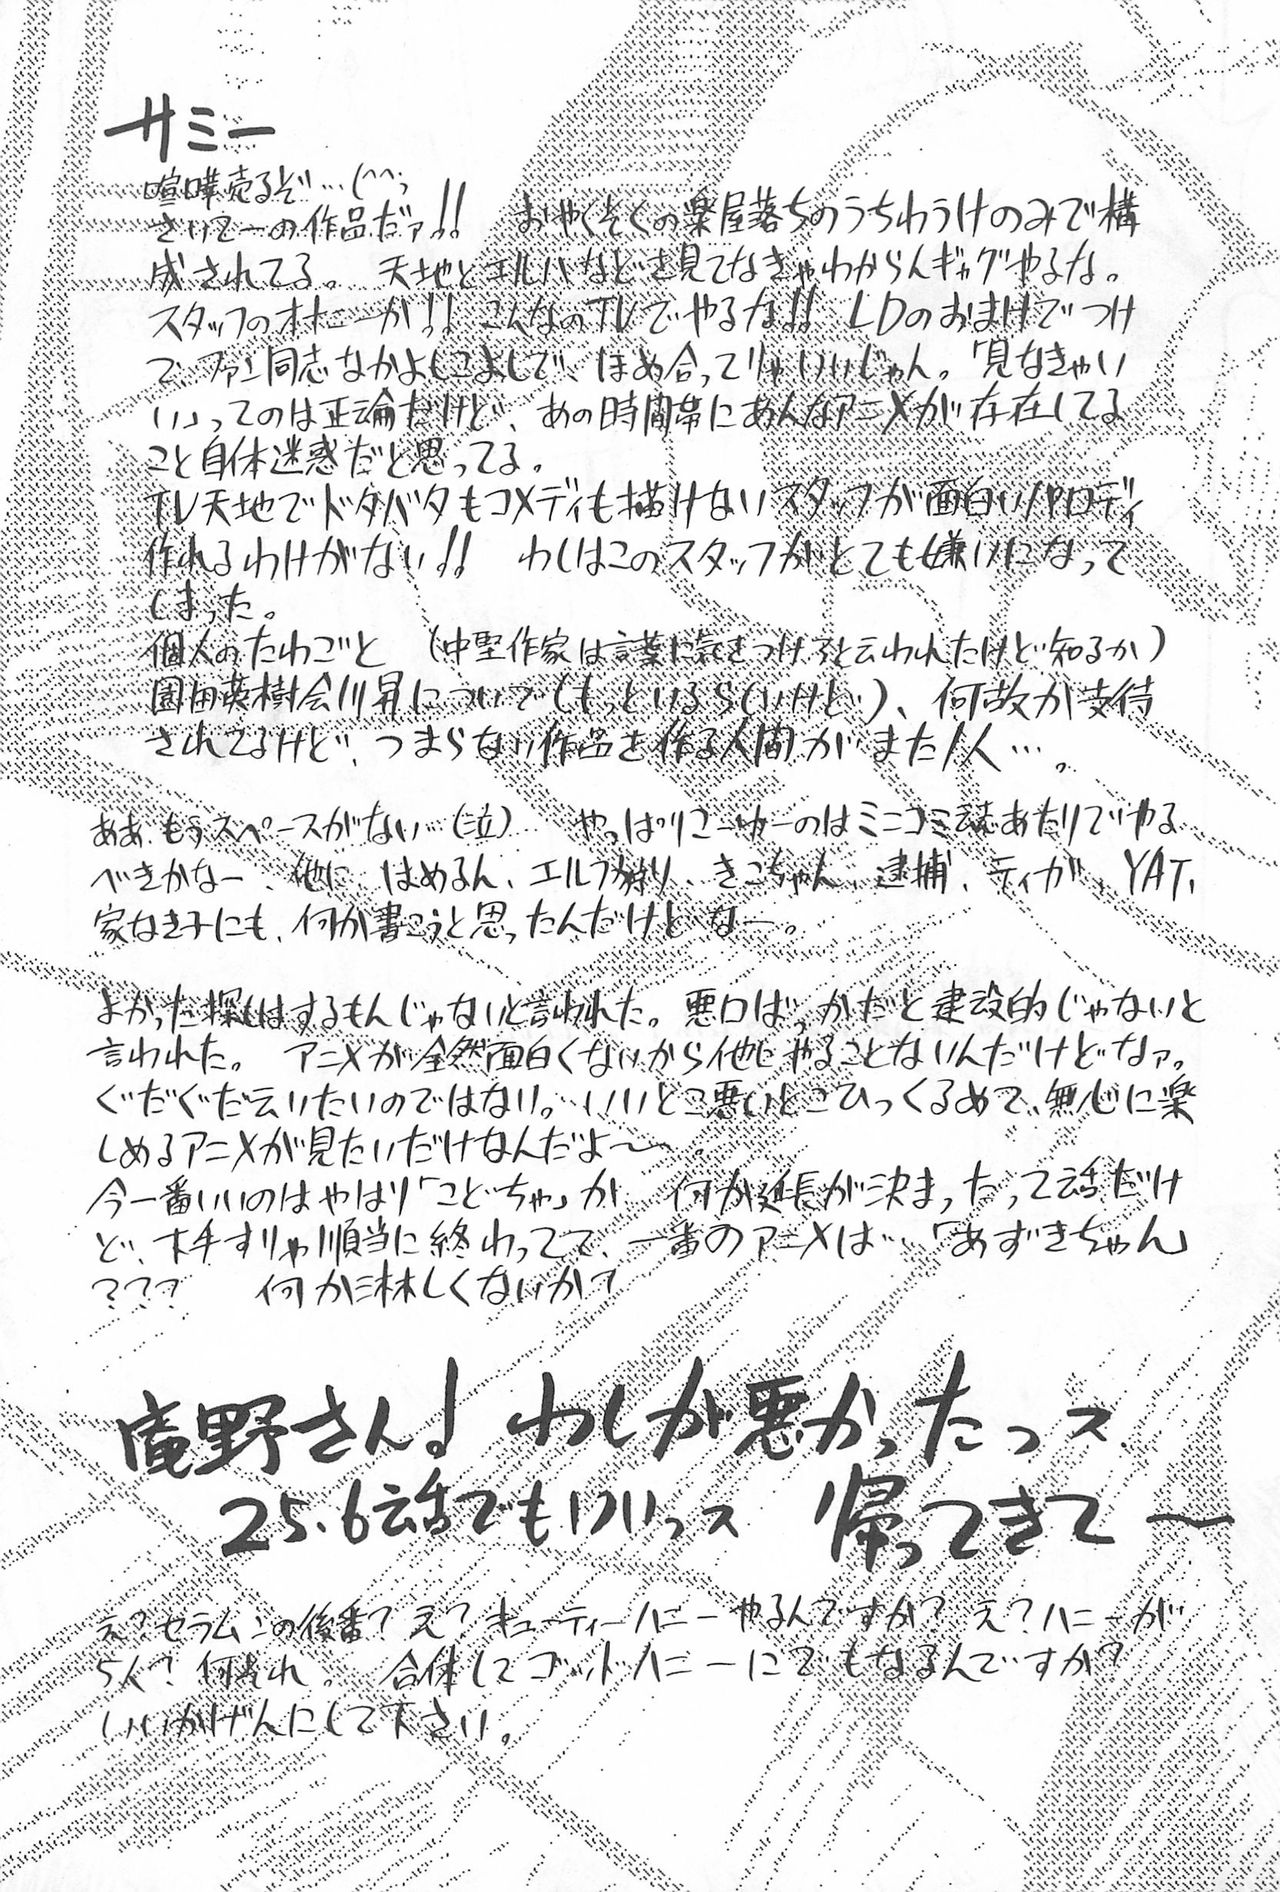 サミー
喧嘩売るぞ…(^^;
さいてーの作品だァ!! おやくそくの楽屋落ちのうちわうけのみで構
成されてる。 天地とエルハなどを見てなきゃわからんギャグやるな。
スタッフのオナニーか!! こんなのTVでやるな!! LDのおまけでつけ
て、ファン同志なかよしこよしで、ほめ合ってりゃいいじゃん。「見なきゃい
い」ってのは正論だけど、あの時間帯にあんなアニメが存在してる
こと自体迷惑だと思ってる。
TV天地でドタバタもコメディも描けないスタッフが面白いパロディ
作れるわけがない!! わしはこのスタッフがとても嫌いになって
しまった。
個人のたわごと (中堅作家は言葉に気をつけろと云われたけど知るか)
園田英樹会川昇について(もっといるらしいけど)、何故か支持
されてるけど、つまらない作品を作る人間がまた1人…。
ああ、もうスペースがない…(泣) やっぱりこーゆーのはミニコミ誌あたりでやる
べきかなー、他に、はめるん、エルフ狩り、きこちゃん、逮捕、ティガ、YAT、
家なき子にも、何か書こうと思ったんだけどなー。
よかった探しはするもんじゃないと言われた。悪口ばっかだと建設的じゃないと
言われた。 アニメが全然面白くないから他にやることないんだけどなァ。
ぐだぐだ云いたいのではない。…いいとこ悪いとこひっくるめて、無心に楽
しめるアニメが見たいだけなんだよ〜。
今一番いいのはやはり「こどちゃ」か 何か延長が決まったって話だけ
ど、ヘ千すりゃ順当に終わってて、一番のアニメは…「あずきちゃん」
??? 何か淋しくないか?
庵野さん! わしが悪かったっス
25.6話でもいいっス 帰ってきて〜
え?セラムンの後番? え? キューティーハニーやるんですか? え?ハニーが
5人? 何それ。 合体してゴッドハニーにでもなるんですか?
いいかげんにして下さい。